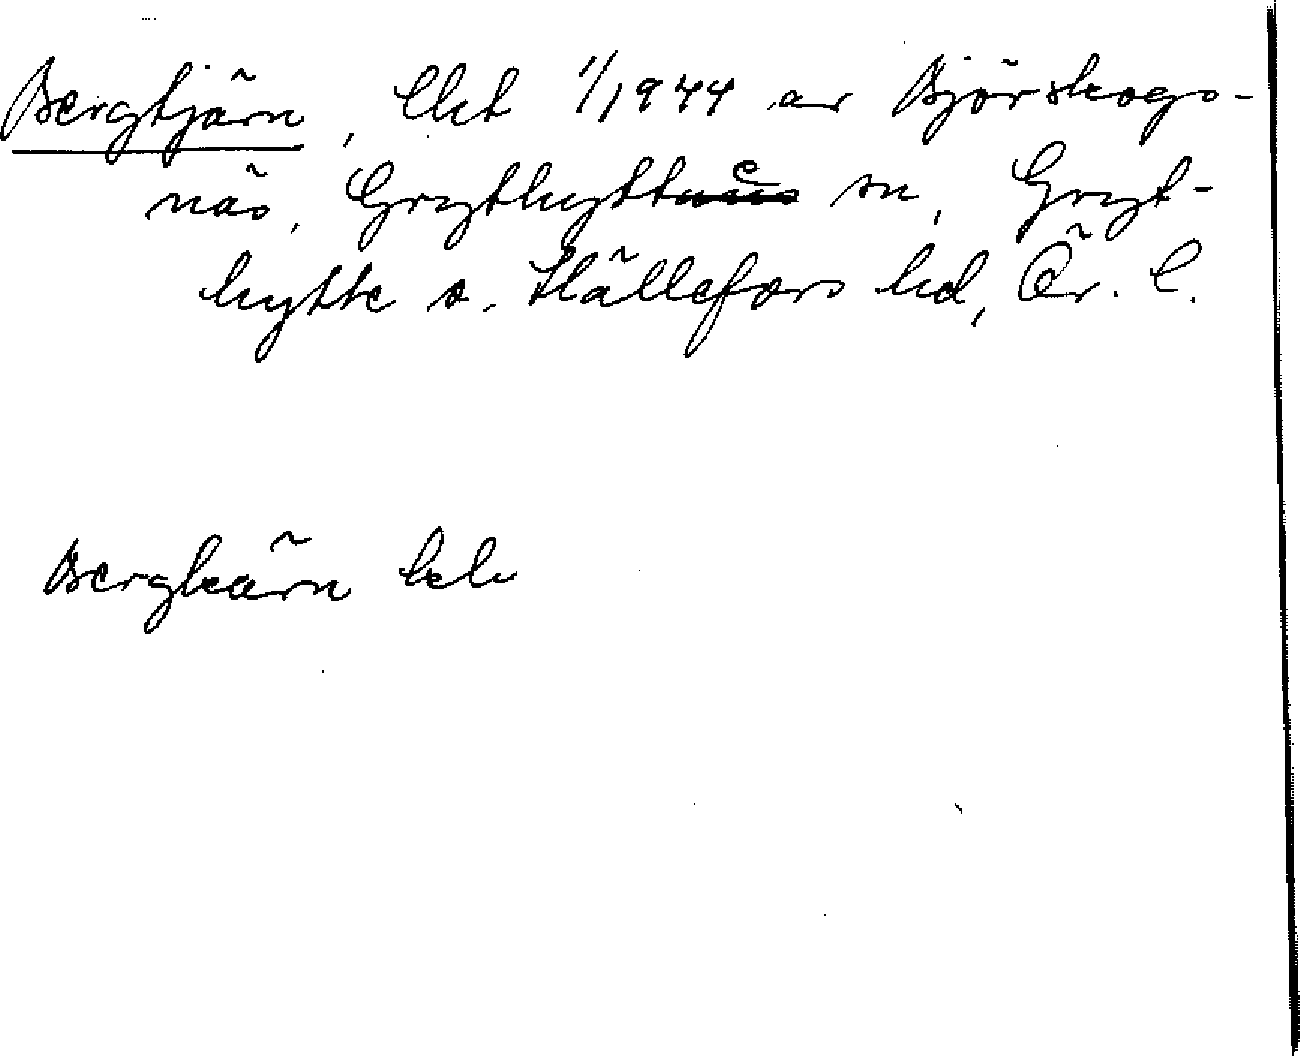 Bergtjärn, Lht 1/1944 av Björskogs-
näs, Grythytte sn, Gryt-
hytte o. Hällefors hd, Ör. l.
Bergkärn